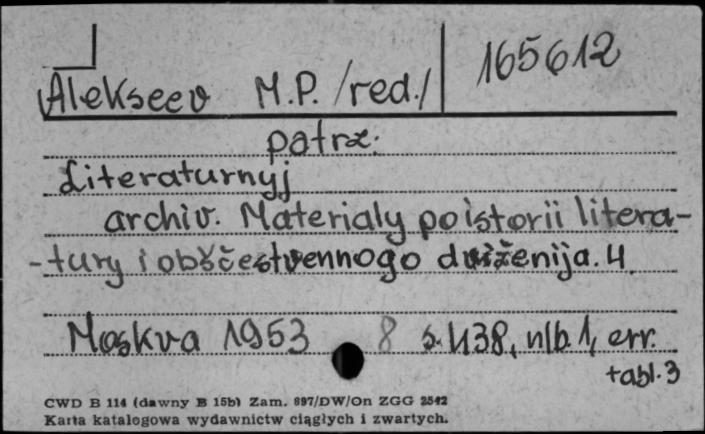 Alekseev M.P. /red./ 165612
patrz:
Literaturnyj
archiv. Materialy po istorii litera-
-tury i obščestvennogo dviženija. 4.
Moskva 1953 8 s. 438, nlb. 1, err.
tabl. 3
CWD B 114 (dawny B 15b) Zam. 897/DW/On ZGG 2542
Karta katalogowa wydawnictw ciągłych i zwartych.